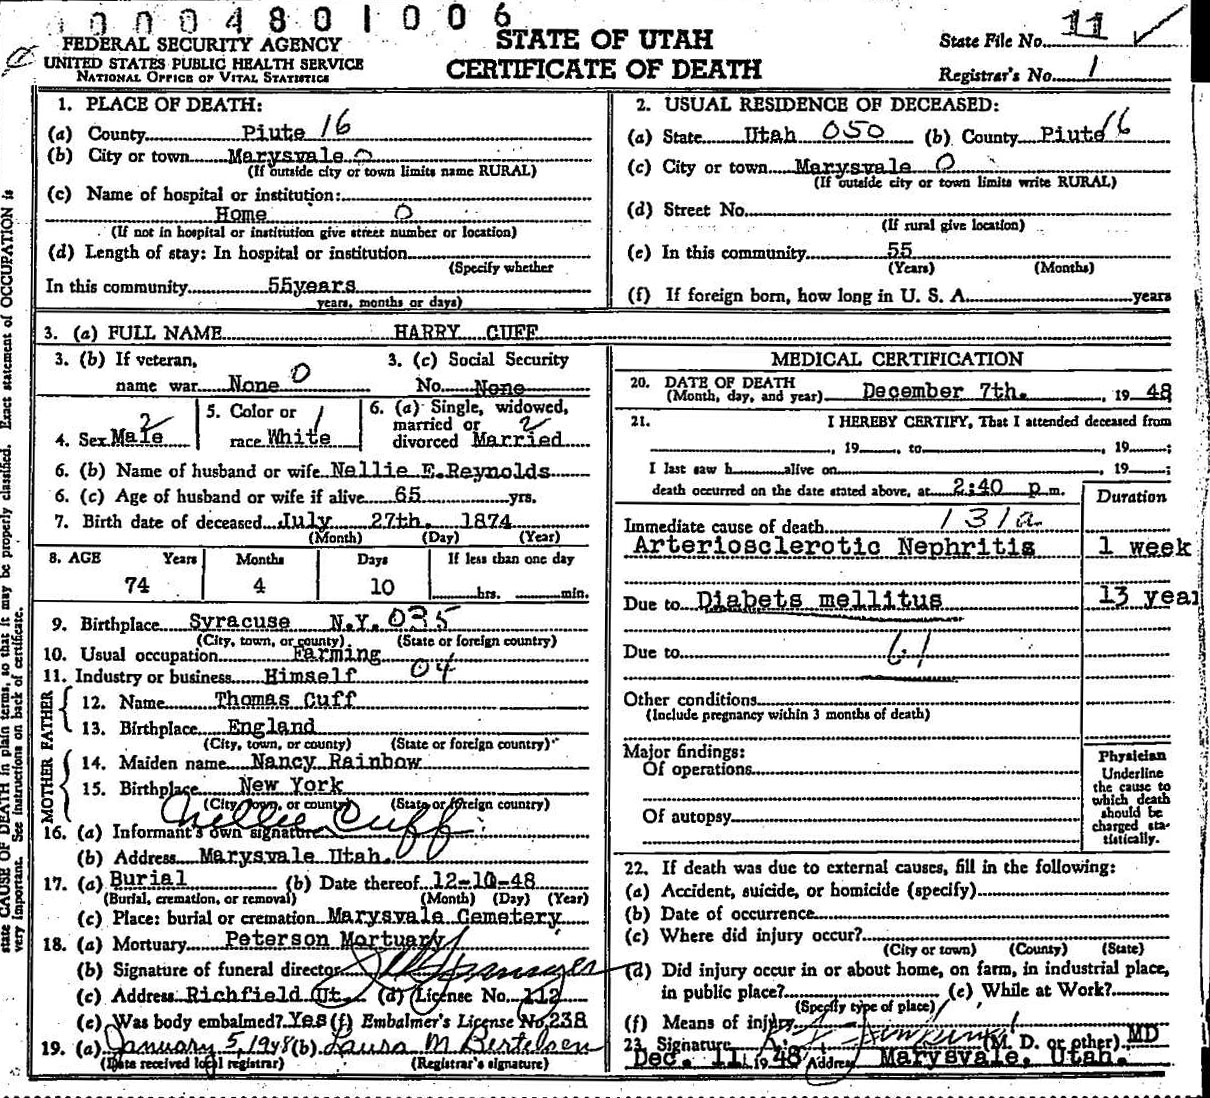 0004801006
STATE OF UTAH
CERTIFICATE OF DEATH
FEDERAL SECURITY AGENCY
UNITED STATES PUBLIC HEALTH SERVICE
NATIONAL OFFICE OF VITAL STATISTICS
State File No. 11
Registrar's No. 1
1. PLACE OF DEATH:
(a) County Piute 16
(b) City or town Marysvale 0
(If outside city or town limits name RURAL)
(c) Name of hospital or institution:
Home 0
(If not in hospital or institution give street number or location)
(d) Length of stay: In hospital or institution
(Specify whether
In this community 55years
years, months or days)
2. USUAL RESIDENCE OF DECEASED:
(a) State Utah 050 (b) County Piute 16
(c) City or town Marysvale 0
(If outside city or town limits write RURAL)
(d) Street No.
(If rural give location)
(e) In this community 55
(Years) (Months)
(f) If foreign born, how long in U. S. A. years
3. (a) FULL NAME HARRY CUFF
3. (b) If veteran,
name war None 0
3. (c) Social Security
No. None
4. Sex Male 2
5. Color or
race White 1
6. (a) Single, widowed,
married or
divorced Married 2
6. (b) Name of husband or wife Nellie E.Reynolds
6. (c) Age of husband or wife if alive 65 yrs.
7. Birth date of deceased July 27th. 1874
(Month) (Day) (Year)
8. AGE Years Months Days If less than one day
74 4 10 hrs. min.
9. Birthplace Syracuse N.Y. 035
(City, town, or county) (State or foreign country)
10. Usual occupation Farming
11. Industry or business Himself 04
FATHER
12. Name Thomas Cuff
13. Birthplace England
(City, town, or county) (State or foreign country)
MOTHER
14. Maiden name Nancy Rainbow
15. Birthplace New York
(City, town, or county) (State or foreign country)
16. (a) Informant's own signature Nellie Cuff
(b) Address Marysvale Utah.
17. (a) Burial (b) Date thereof 12-10-48
(Burial, cremation, or removal) (Month) (Day) (Year)
(c) Place: burial or cremation Marysvale Cemetery
18. (a) Mortuary Peterson Mortuary
(b) Signature of funeral director
(c) Address Richfield Ut. (d) License No. 112
(e) Was body embalmed? Yes (f) Embalmer's License No. 238
19. (a) January 5, 1948 (b) Laura M Bertelsen
(Date received local registrar) (Registrar's signature)
MEDICAL CERTIFICATION
20. DATE OF DEATH
(Month, day, and year) December 7th. , 19 48
21. I HEREBY CERTIFY, That I attended deceased from
, 19 , to , 19 ;
I last saw h alive on , 19 ;
death occurred on the date stated above, at 2:40 p m.
Duration
Immediate cause of death 131a
Arteriosclerotic Nephritis 1 week
Due to Diabets mellitus 13 year
Due to 61
Other conditions
(Include pregnancy within 3 months of death)
Major findings:
Of operations
Of autopsy
Physician
Underline
the cause to
which death
should be
charged sta-
tistically.
22. If death was due to external causes, fill in the following:
(a) Accident, suicide, or homicide (specify)
(b) Date of occurrence
(c) Where did injury occur?
(City or town) (County) (State)
(d) Did injury occur in or about home, on farm, in industrial place,
in public place? (e) While at Work?
(Specify type of place)
(f) Means of injury
23. Signature (M. D. or other) MD
Dec. 11 19 48 Address Marysvale, Utah.
state CAUSE OF DEATH in plain terms, so that it may be properly classified. Exact statement of OCCUPATION is
very important. See instructions on back of certificate.